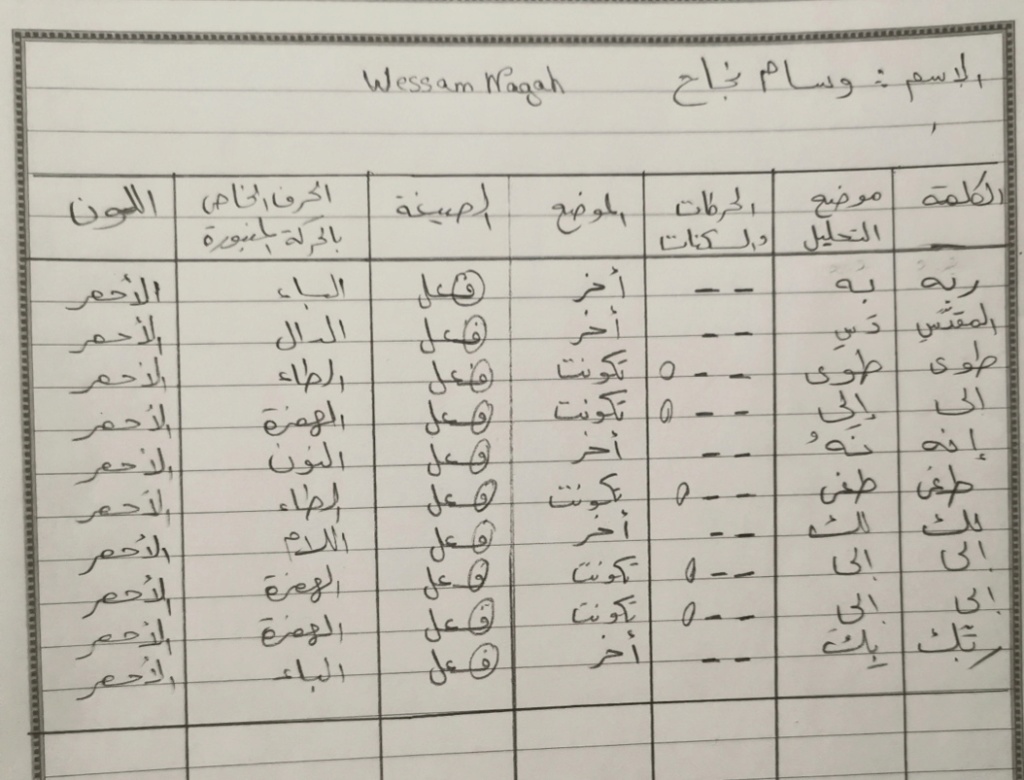 الاسم : وسام نجاح Wessam Nagah
الكلمة موضع التحليل الحركات والسكنات الموضع الصيغة الحرف الخاص بالحركة المنبورة اللون
ربه بَهُ -- أخر فعل الباء الأحمر
المقدَّسِ دَسِ -- أخر فعل الدال الأحمر
طوى طوى --o تكونت فعل الطاء الأحمر
إلى إلى --o تكونت فعل الهمزة الأحمر
إنه نَهُ -- أخر فعل النون الأحمر
طغى طغى --o تكونت فعل الطاء الأحمر
لك لك -- أخر فعل اللام الأحمر
إلى إلى --o تكونت فعل الهمزة الأحمر
إلى إلى --o تكونت فعل الهمزة الأحمر
ربك بِكَ -- أخر فعل الباء الأحمر